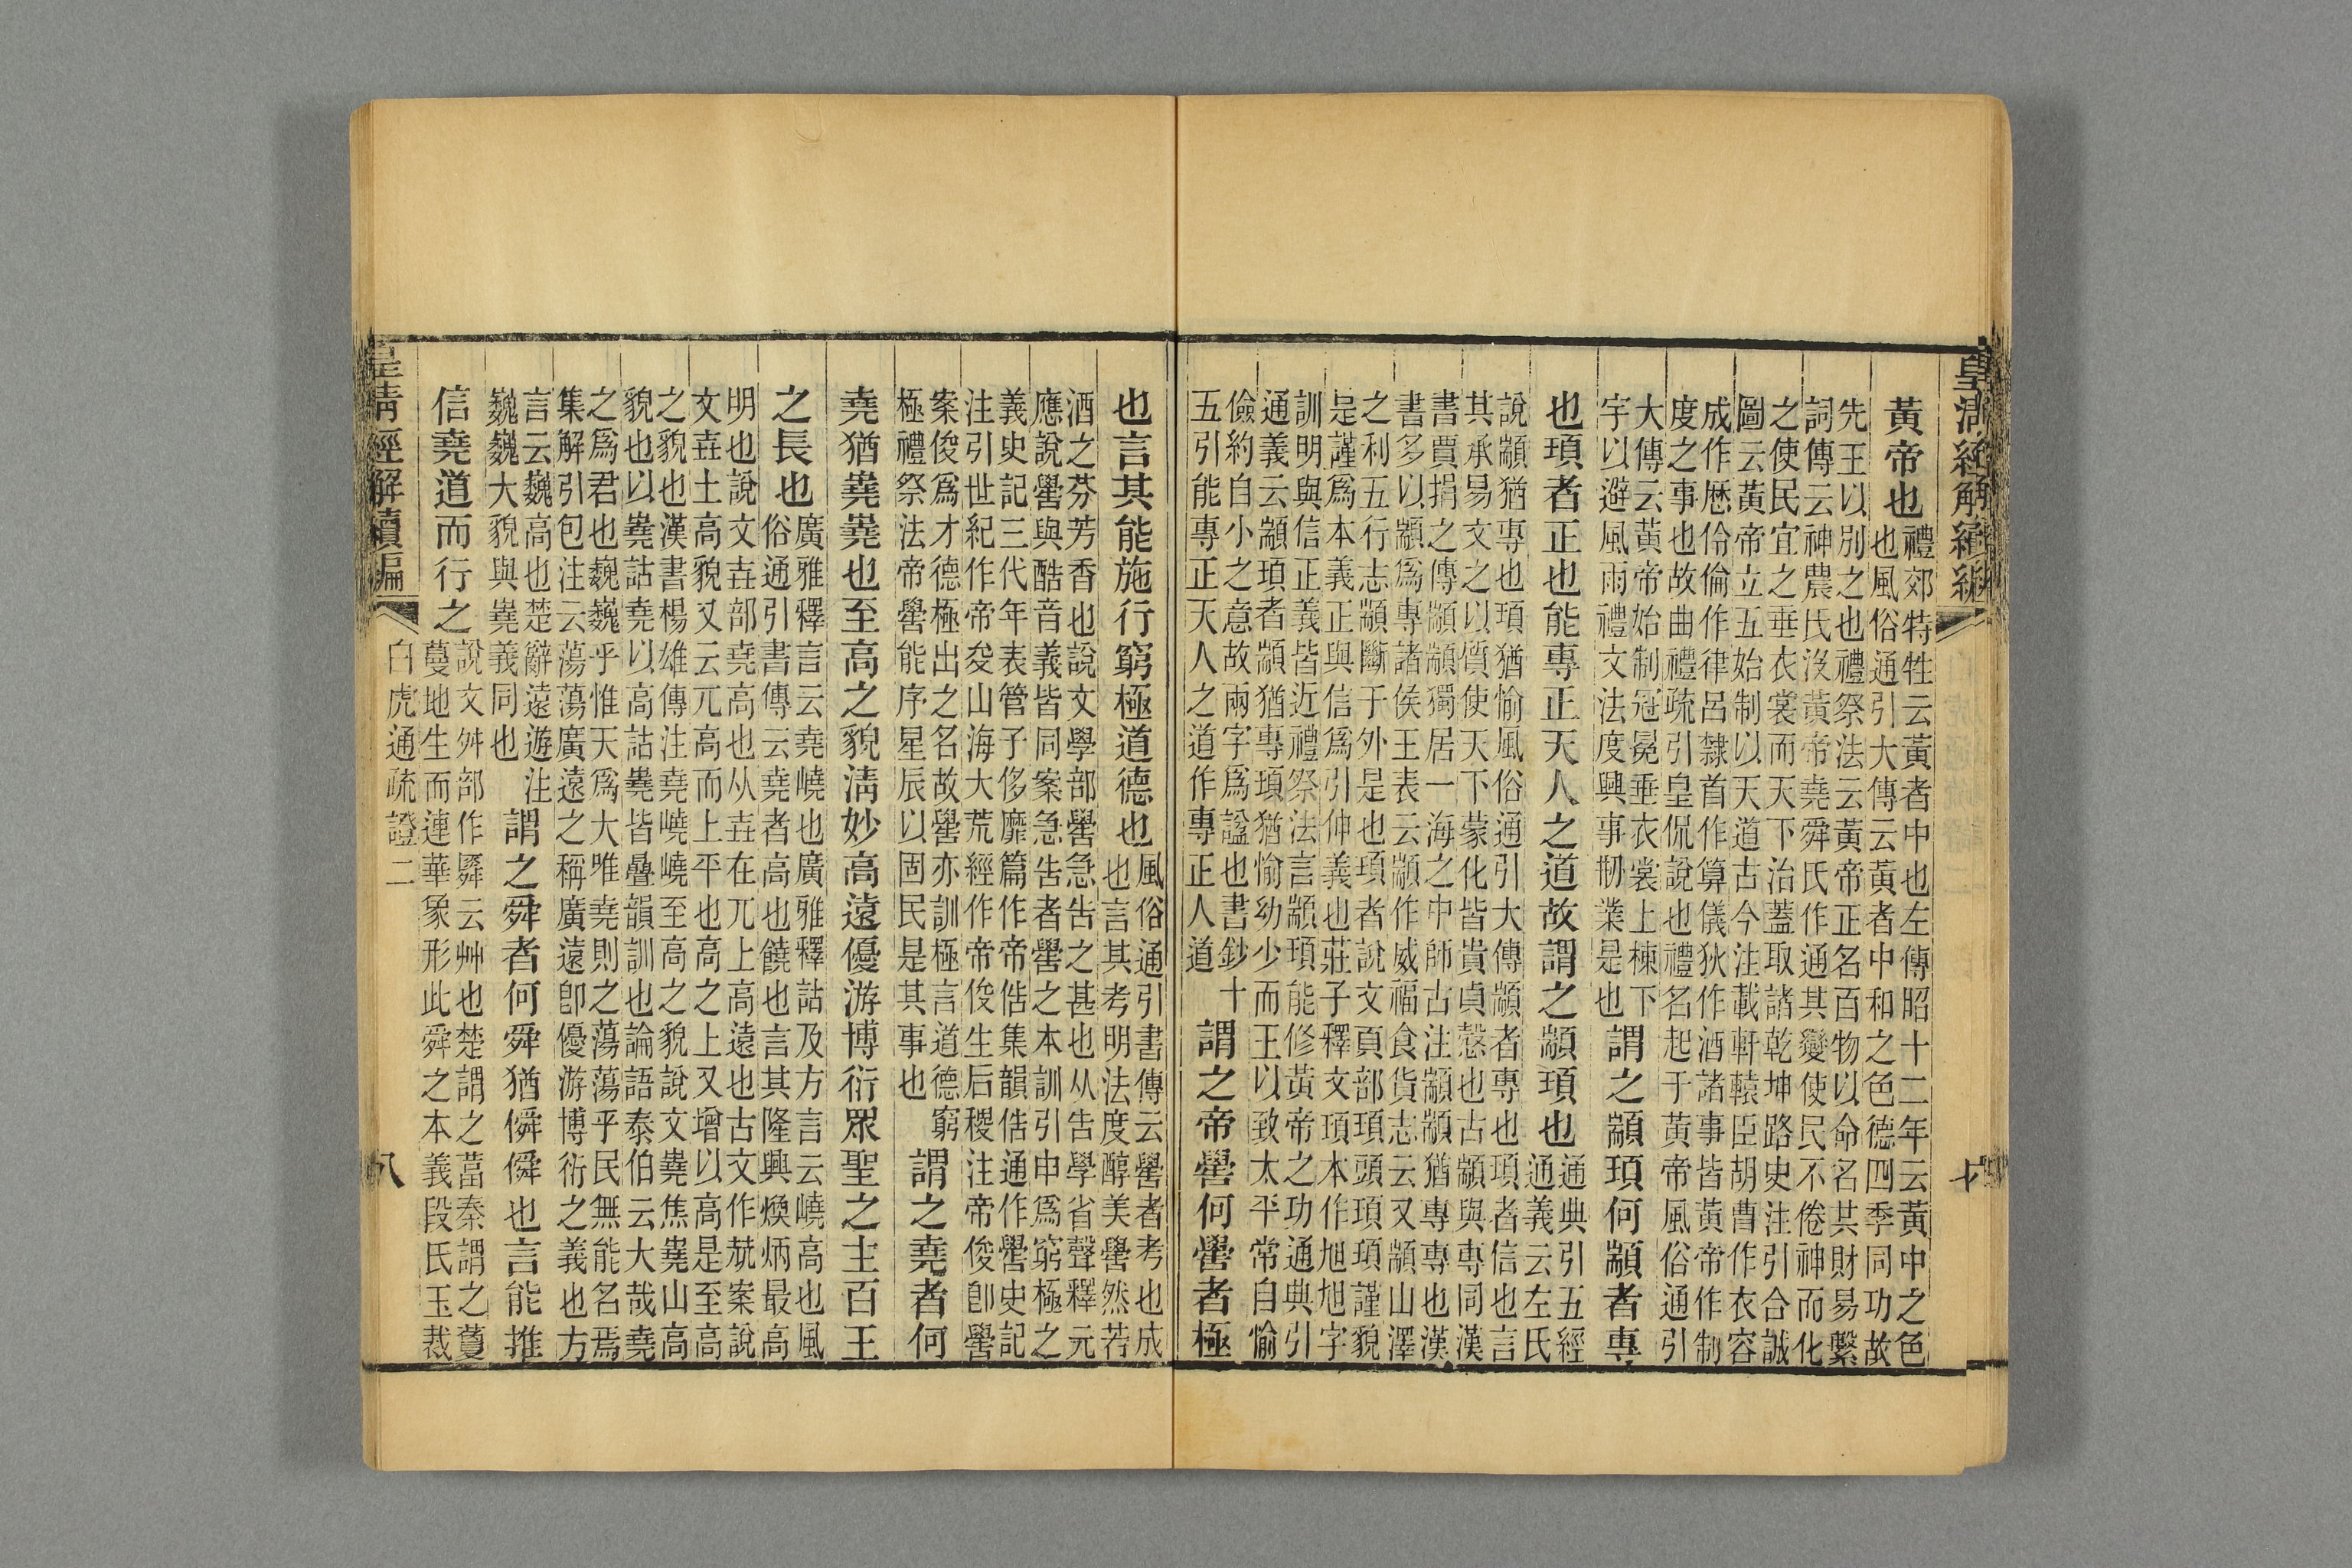 皇清經解續編
七
黃帝也
禮郊特牲云黃者中也左傳昭十二年云黃中之色
也風俗通引大傳云黃者中和之色德四季同功故
先王以別之也禮祭法云黃帝正名百物以命名其財易繫
詞傳云神農氏沒黃帝堯舜氏作通其變使民不倦神而化
之使民宜之垂衣裳而天下治蓋取諸乾坤路史注引合誠
圖云黃帝立五始制以天道古今注載軒轅臣胡曹作衣容
成作厤伶倫作律呂隸首作算儀狄作酒諸事皆黃帝作制
度之事也故曲禮疏引皇侃說也禮名起于黃帝風俗通引
大傳云黃帝始制冠冕垂衣裳上棟下
宇以避風雨禮文法度興事刱業是也
謂之顓頊何顓者專
也頊者正也能專正天人之道故謂之顓頊也
通典引五經
通義云左氏
說顓猶專也頊猶愉風俗通引大傳顓者專也頊者信也言
其承易文之以質使天下蒙化皆貴貞慤也古顓與專同漢
書賈捐之傳顓顓獨居一海之中師古注顓顓猶專專也漢
書多以顓爲專諸侯王表云顓作威福食貨志云又顓山澤
之利五行志顓斷于外是也頊者說文頁部頊頭頊頊謹貌
是謹爲本義正與信爲引伸義也莊子釋文頊本作旭旭字
訓明與信正義皆近禮祭法言顓頊能修黃帝之功通典引
通義云顓頊者顓猶專頊猶愉幼少而王以致太平常自愉
儉約自小之意故兩字爲諡也書鈔十
五引能專正天人之道作專正人道
謂之帝嚳何嚳者極
也言其能施行窮極道德也
風俗通引書傳云嚳者考也成
也言其考明法度醇美嚳然若
酒之芬芳香也說文學部嚳急告之甚也从告學省聲釋元
應說嚳與酷音義皆同案急告者嚳之本訓引申爲窮極之
義史記三代年表管子侈靡篇作帝俈集韻俈通作嚳史記
注引世紀作帝夋山海大荒經作帝俊生后稷注帝俊卽嚳
案俊爲才德極出之名故嚳亦訓極言道德窮
極禮祭法帝嚳能序星辰以固民是其事也
謂之堯者何
堯猶嶤嶤也至高之貌淸妙高遠優游博衍眾聖之主百王
之長也
廣雅釋言云堯嶢也廣雅釋詁及方言云嶢高也風
俗通引書傳云堯者高也饒也言其隆興煥炳最高
明也說文垚部堯高也从垚在兀上高遠也古文作𡋰案說
文垚土高貌又云兀高而上平也高之上又增以高是至高
之貌也漢書楊雄傳注堯嶢嶢至高之貌說文嶤焦嶤山高
貌也以嶤詁堯以高詁嶤皆疊韻訓也論語泰伯云大哉堯
之爲君也巍巍乎惟天爲大唯堯則之蕩蕩乎民無能名焉
集解引包注云蕩蕩廣遠之稱廣遠卽優游博衍之義也方
言云巍高也楚辭遠遊注
巍巍大貌與嶤義同也
謂之舜者何舜猶僢僢也言能推
信堯道而行之
說文舛部作䑞云艸也楚謂之葍秦謂之藑
蔓地生而連華象形此舜之本義段氏玉裁
皇清經解續編
白虎通疏證二
八